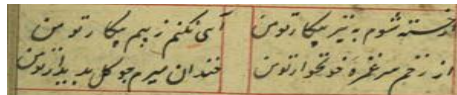 خسته شوم به تیر پیکار تو من آهی نکنم ز بیم پیکار تو من
از زخم سر غمزه خونخوار تو من خندان میرم چو گل بدیدار تو من